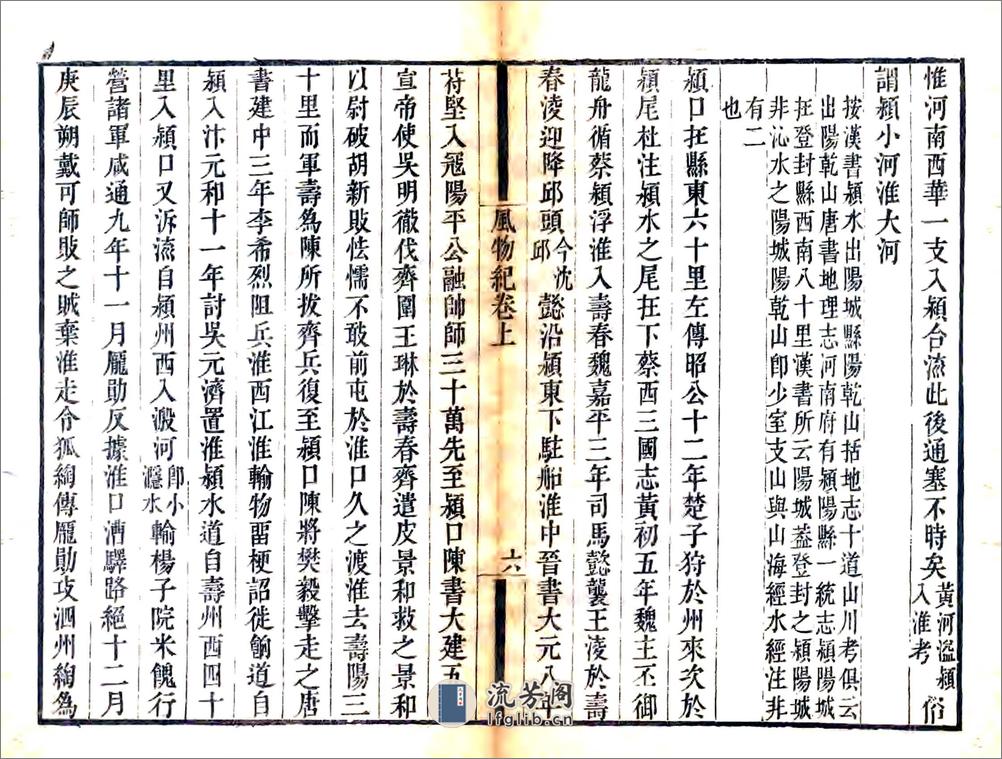 惟河南西華一支入潁合流此後通塞不時矣黃河濫潁入淮考俗
謂潁小河淮大河
按漢書潁水出陽城縣陽乾山括地志十道山川考俱云
出陽乾山唐書地理志河南府有潁陽縣一統志潁陽城
在登封縣西南八十里漢書所云陽城葢登封之潁陽城
非沁水之陽城陽乾山卽少室支山與山海經水經注非
有二
也
潁口在縣東六十里左傳昭公十二年楚子狩於州來次於
潁尾杜注潁水之尾在下蔡西三國志黃初五年魏主丕御
龍舟循蔡潁浮淮入壽春魏嘉平三年司馬懿襲王淩於壽
春淩迎降邱頭今沈邱懿沿潁東下駐船淮中晉書大元八年
風物紀卷上
六
苻堅入寇陽平公融帥師三十萬先至潁口陳書大建五
宣帝使吳明徹伐齊圍王琳於壽春齊遣皮景和救之景和
以尉破胡新敗怯懦不敢前屯於淮口久之渡淮去壽陽三
十里而軍壽為陳所拔齊兵復至潁口陳將樊毅擊走之唐
書建中三年李希烈阻兵淮西江淮輸物畱梗詔徙餉道自
潁入汴元和十一年討吳元濟置淮潁水道自壽州西四十
里入潁口又泝流自潁州西入溵河卽小㶏水輸楊子院米餽行
營諸軍咸通九年十一月龐勛反據淮口漕驛路絕十二月
庚辰朔戴可師敗之賊棄淮走令狐綯傳龐勛攻泗州綯為
流芳阁
lfglib.cn